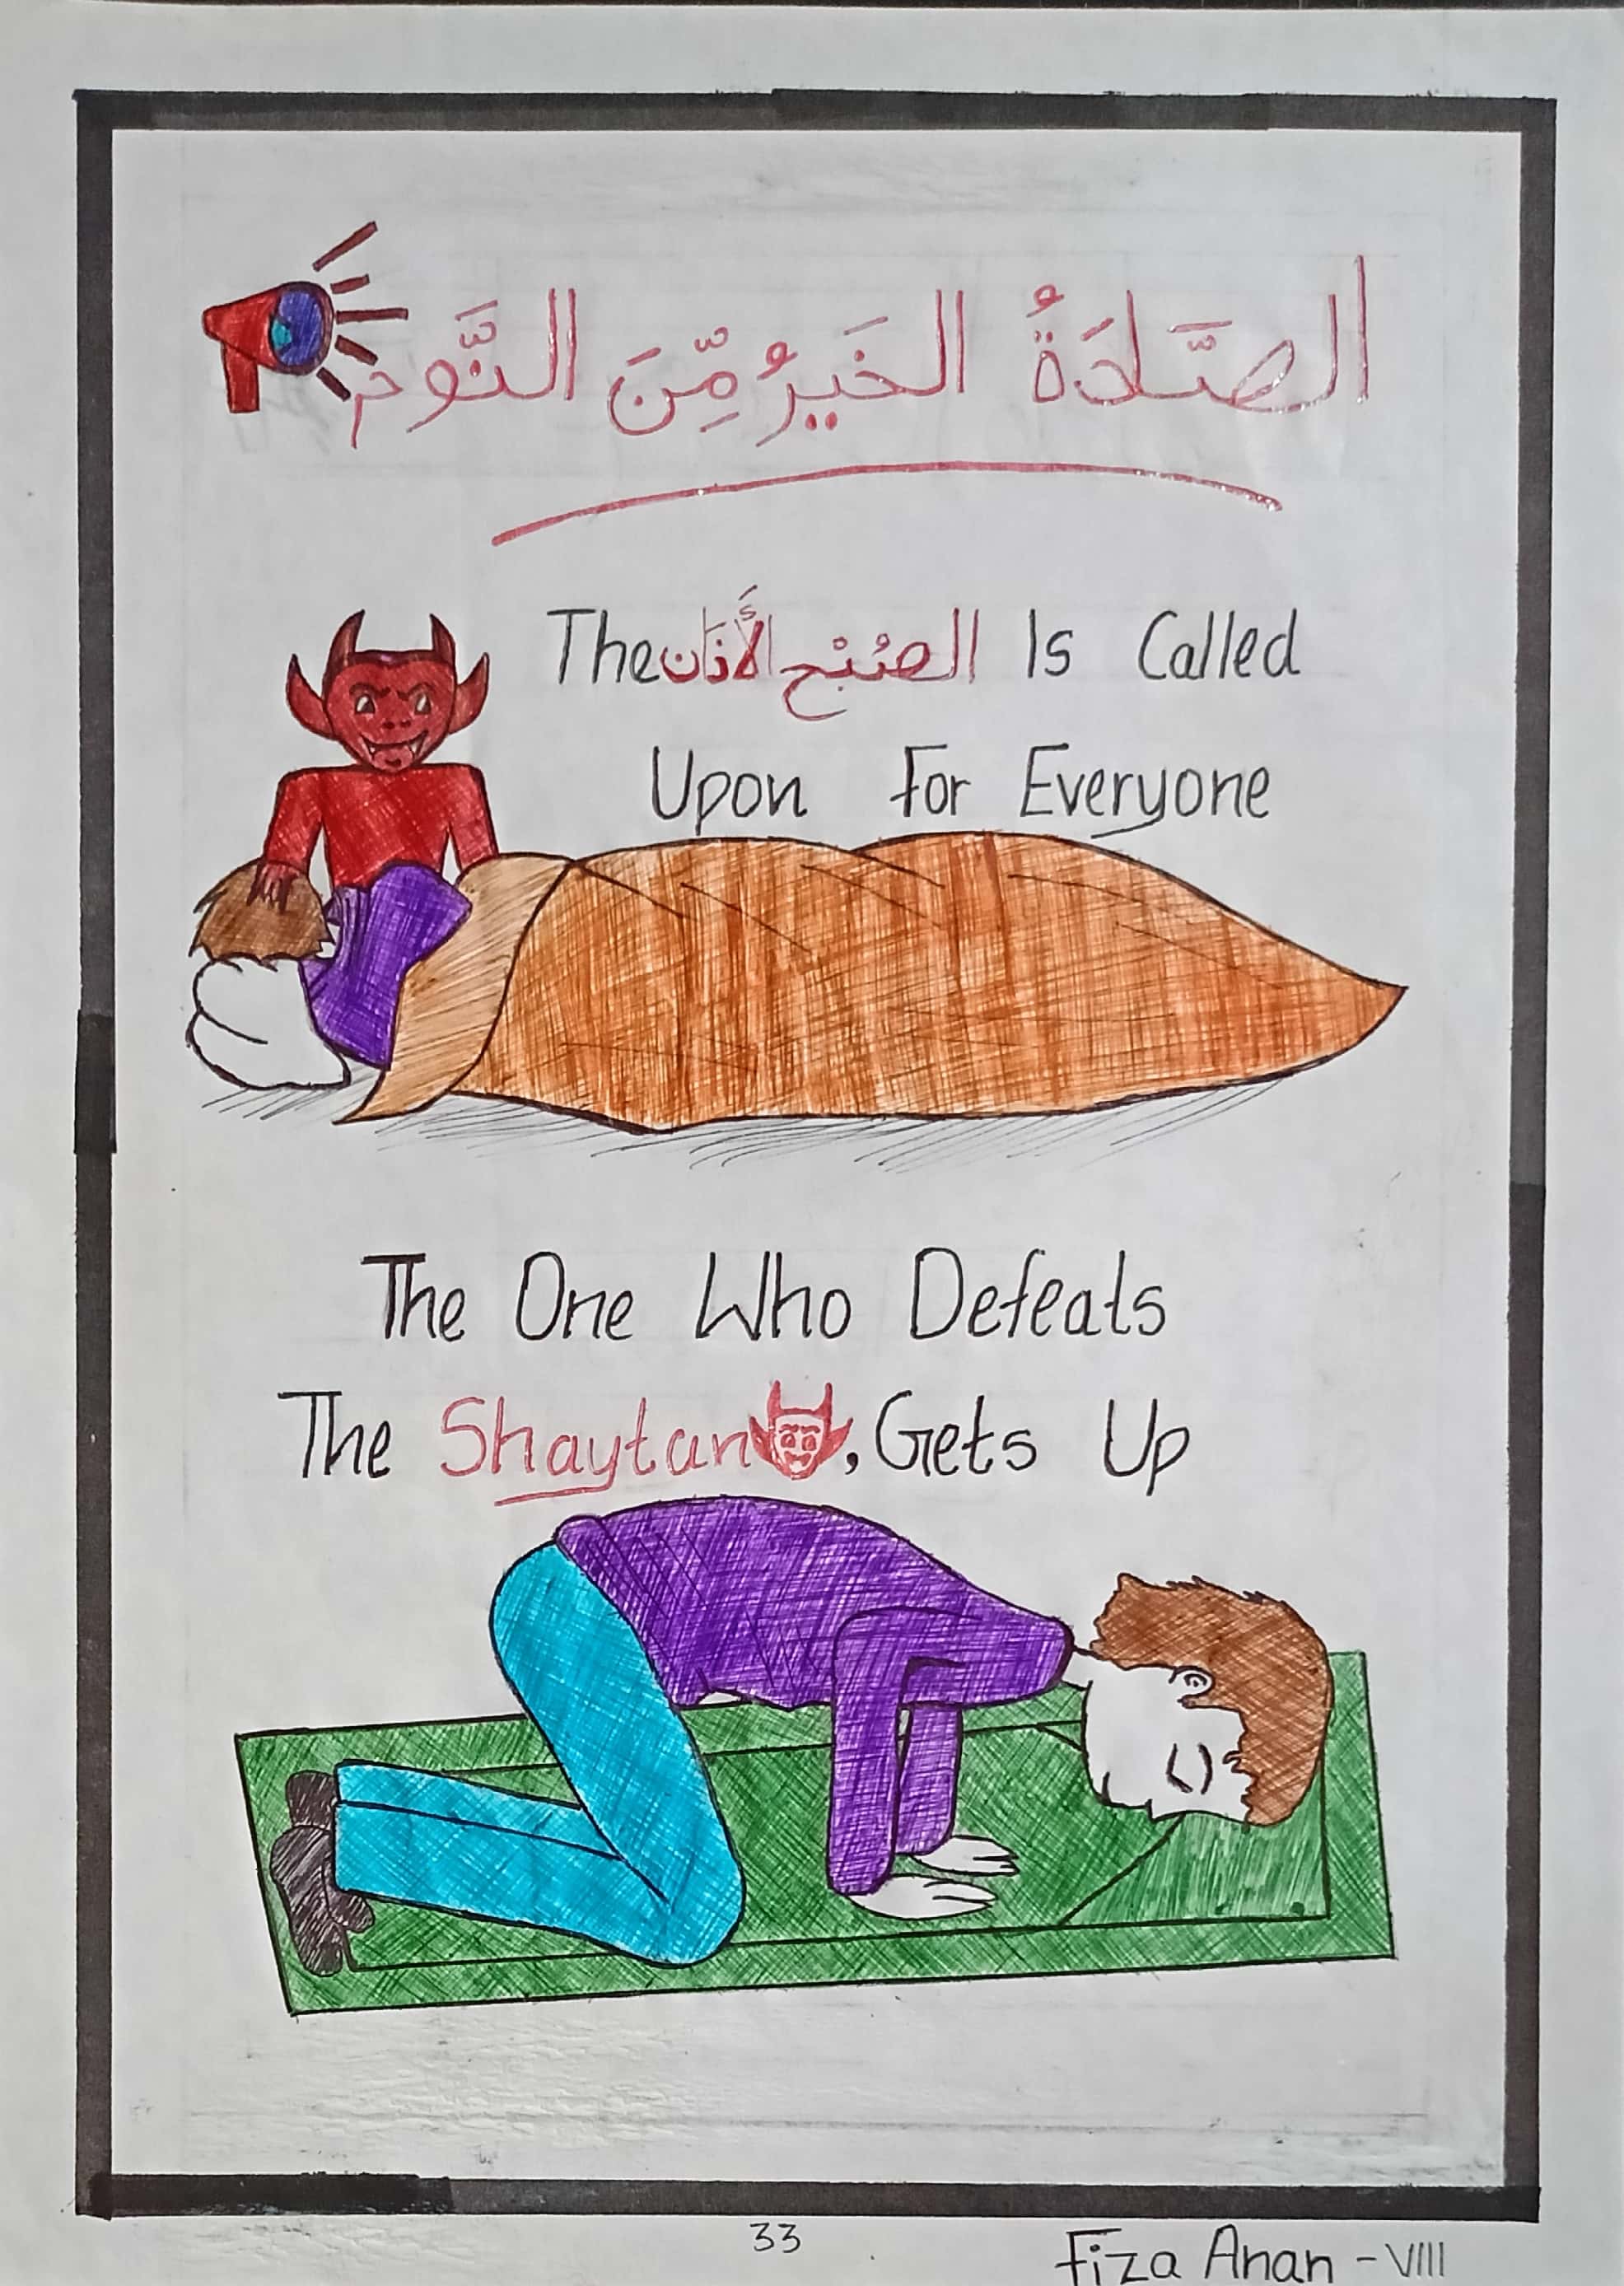 الصَّلَاةُ الخَيرُ مِّنَ النَّوم
The الصُبْح الأَذَان Is Called
Upon For Everyone
The One Who Defeats
The Shaytan, Gets Up
33
Fiza Anan - VIII